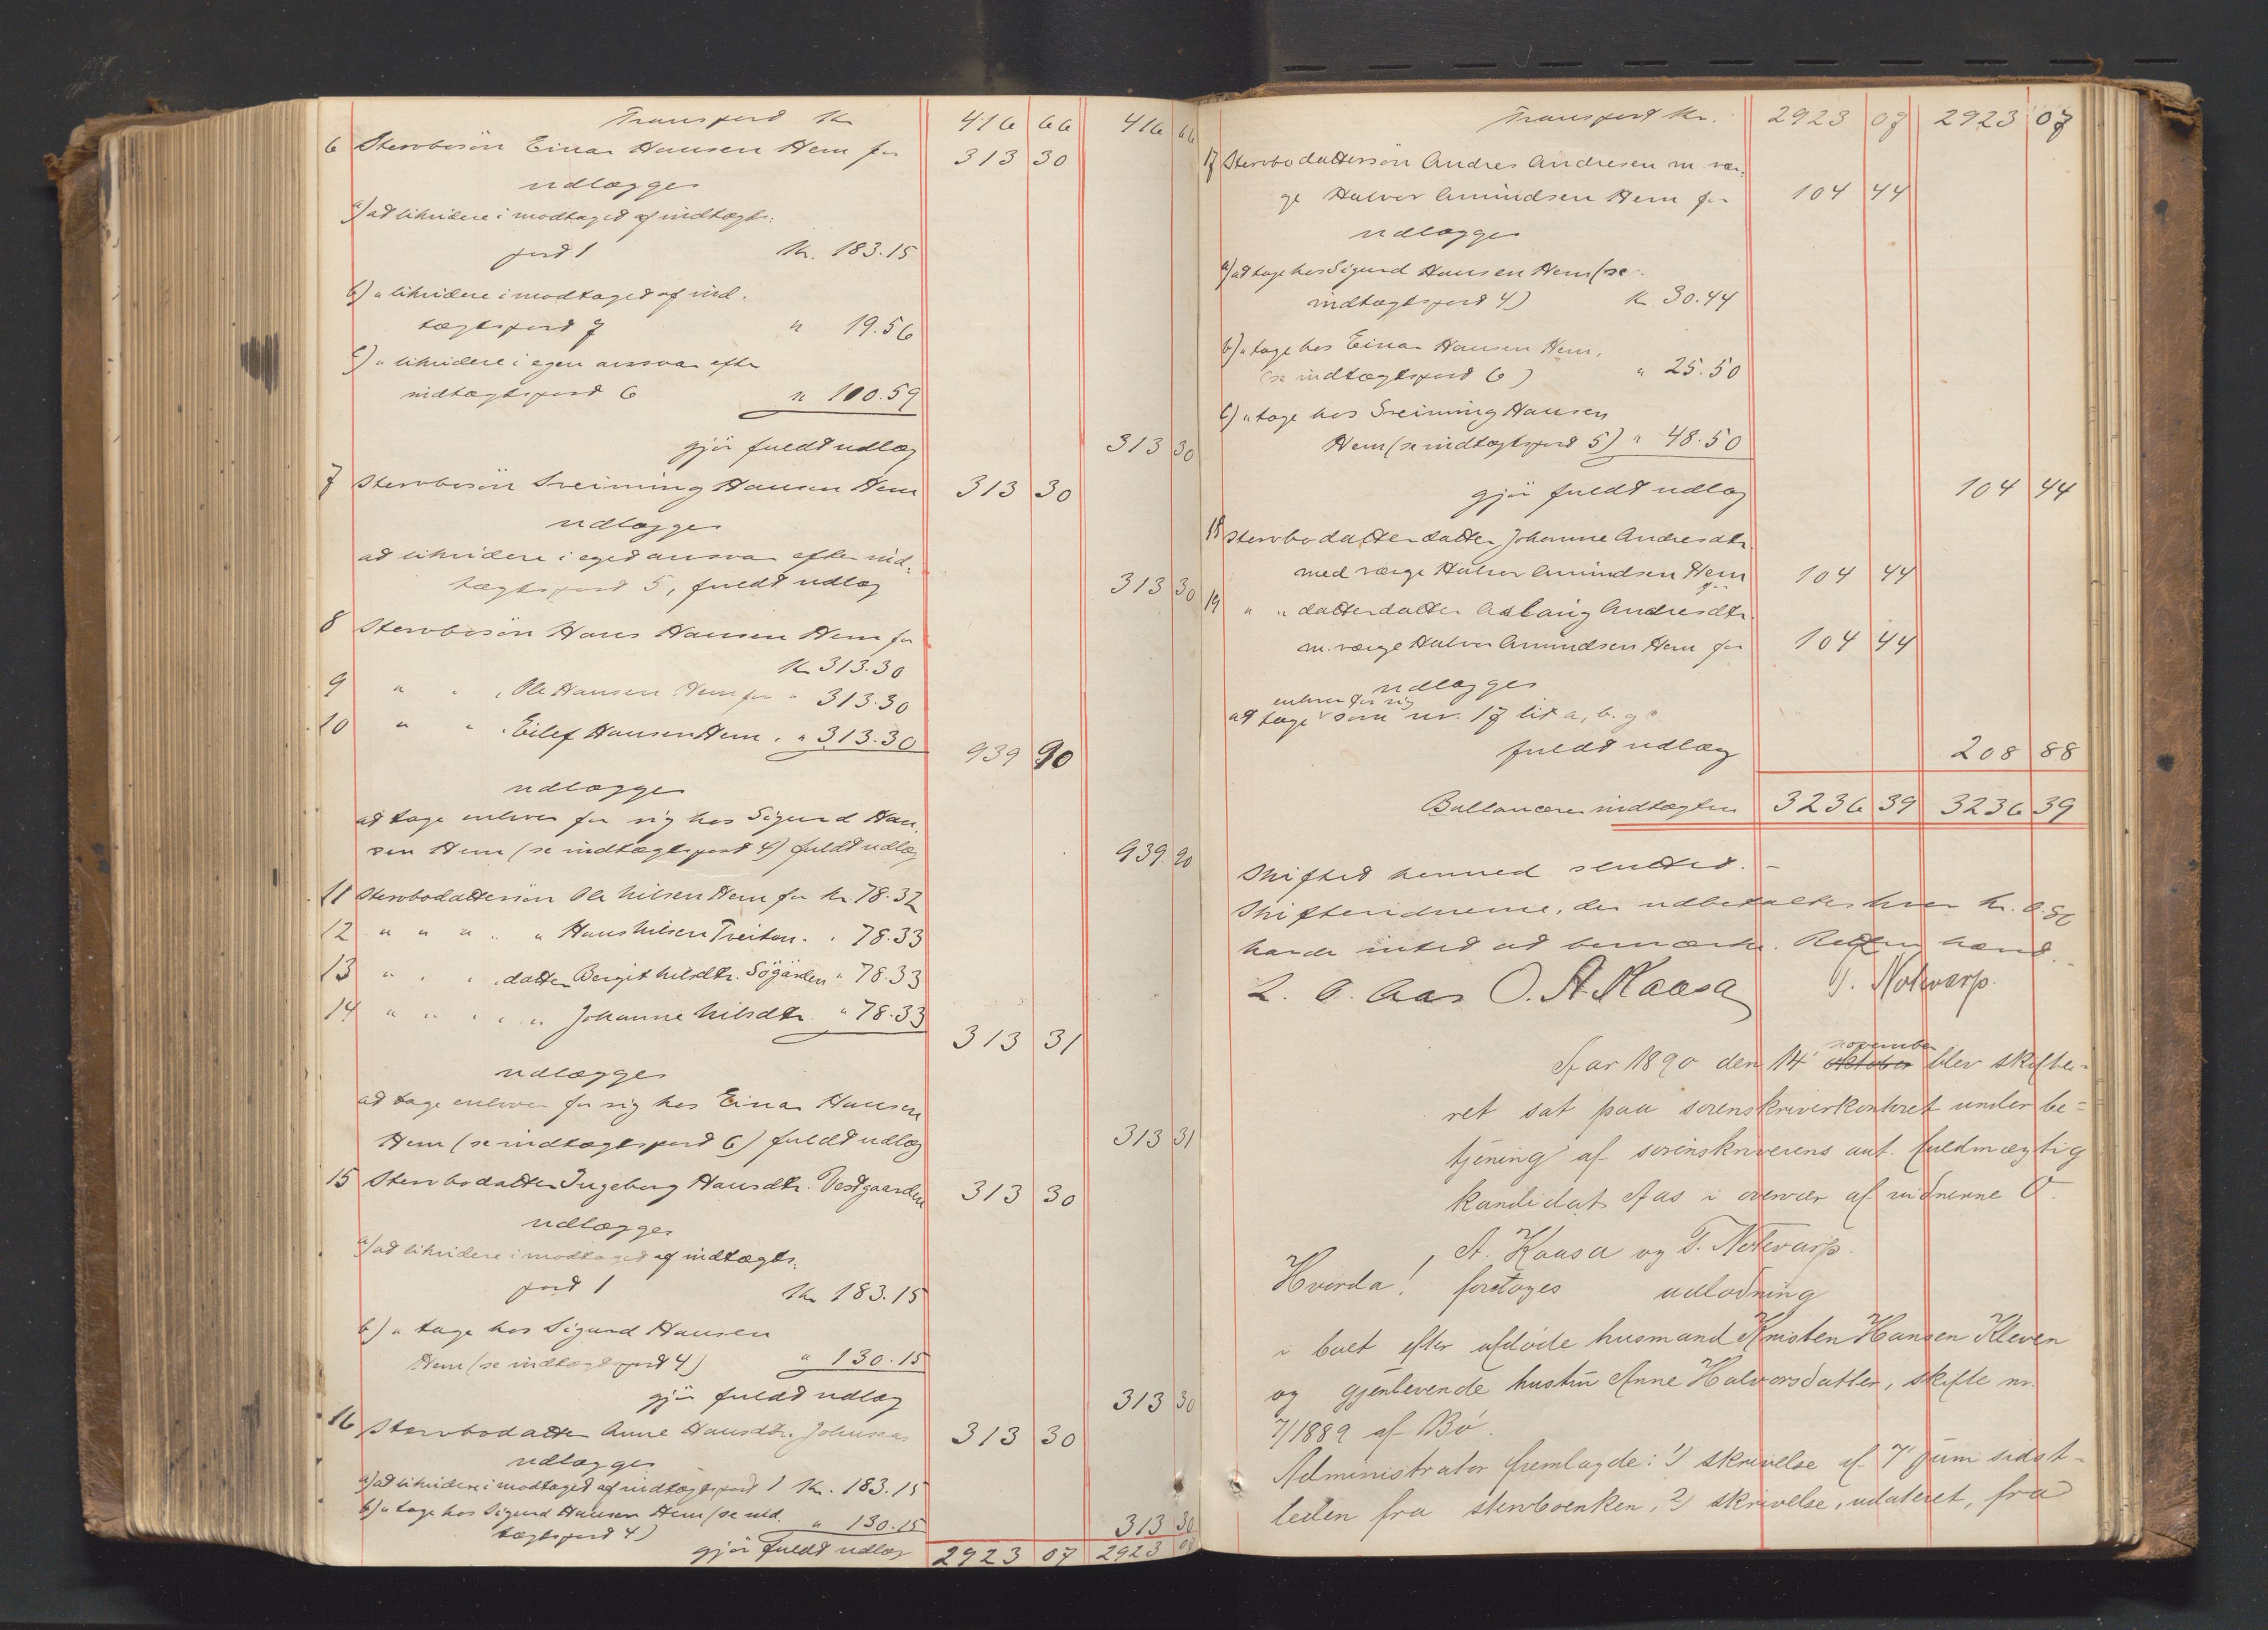 Transport Kr 416 66 416 66
6 Stervbosön Einar Hansen Hem for 313 30
udlægges
a) at likvidere i modtaget af indtægts-
post 1 Kr. 183.15
b) " likvidere i modtaget af ind-
tægtspost 7 " 19.56
c) " likvidere i egen ansvar efter
indtægtspost 6 " 110.59
gjør fuldt udlæg 313 30
7 Stervbosön Sveinung Hansen Hem 313 30
udlægges
at likvidere i eget ansvar efter ind-
tægtspost 5, fuldt udlæg 313 30
8 Stervbosön Hans Hansen Hem for
Kr 313.30
9 " " " Ole Hansen Hem for " 313.30
10 " " " Eilef Hansen Hem " " 313.30 939 90
udlægges
at tage enhver for sig hos Sigurd Han-
sen Hem (se indtægtspost 4) fuldt udlæg 939 90
11 Stervbodattersön Ole Nilsen Hem for Kr. 78.32
12 " " " " " Hans Nilsen Treiton " " 78.33
13 " " " " datter Bergit Nilsdtr. Sögården " 78.33
14 " " " " " Johanne Nilsdtr. " 78.33 313 31
udlægges
at tage enhver for sig hos Einar Hansen
Hem (se indtægtspost 6) fuldt udlæg 313 31
15 Stervbodatter Ingeborg Hansdtr. Vestgaarden 313 30
udlægges
a) at likvidere i modtaget af indtægts-
post 1 Kr 183.15
b) " tage hos Sigurd Hansen
Hem (se indtægtspost 4) " 130.15
gjør fuldt udlæg 313 30
16 Stervbodatter Anne Hansdtr. Johnsaas 313 30
udlægges
a) at likvidere i modtaget af indtægtspost 1 Kr. 183.15
b) " tage hos Sigurd Hansen Hem (se ind-
tægtspost 4) " 130.15 313 30
gjør fuldt udlæg 2923 07 2923 07
Transport Kr. 2923 07 2923 07
17 Stervbodattersön Andres Andresen m. vær-
ge Halvor Amundsen Hem for 104 44
udlægges
a) at tage hos Sigurd Hansen Hem (se
indtægtspost 4) Kr 30.44
b) " tage hos Einar Hansen Hem,
(se indtægtspost 6) " 25.50
c) " tage hos Sveinung Hansen
Hem (se indtægtspost 5) " 48.50
gjør fuldt udlæg 104 44
18 Stervbodatterdatter Johanne Andresdtr.
med værge Halvor Amundsen Hem for 104 44
19 " " datterdatter Aslaug Andresdtr.
m. værge Halvor Amundsen Hem for 104 44
udlægges
enhver for sig
at tage som nr. 17 lit a, b. og c.
fuldt udlæg 208 88
Ballancerer indtægten 3236 39 3236 39
Skiftet hermed sluttet. -
Skiftevidnerne, der udbetaltes hver Kr. 0.80
havde intet at bemærke. Retten hævet.
L. A. Aas O. A. Kaasa T. Notevarp.
november
Aar 1890 den 14' oktober blev skifte-
ret sat paa sorenskriverkontoret under be-
tjening af sorenskriverens aut. fuldmægtig
kandidat Aas i overvær af vidnerne O.
A. Kaasa og T. Notevarp.
Hvorda! foretoges udlodning
i boet efter afdøde husmand Kristen Hansen Kleven
og gjenlevende hustru Anne Halvorsdatter, skifte nr.
7/1889 af Bø.
Administrator fremlagde: 1) skrivelse af 7' juni sidst-
leden fra stervboenken, 2) skrivelse, udateret, fra